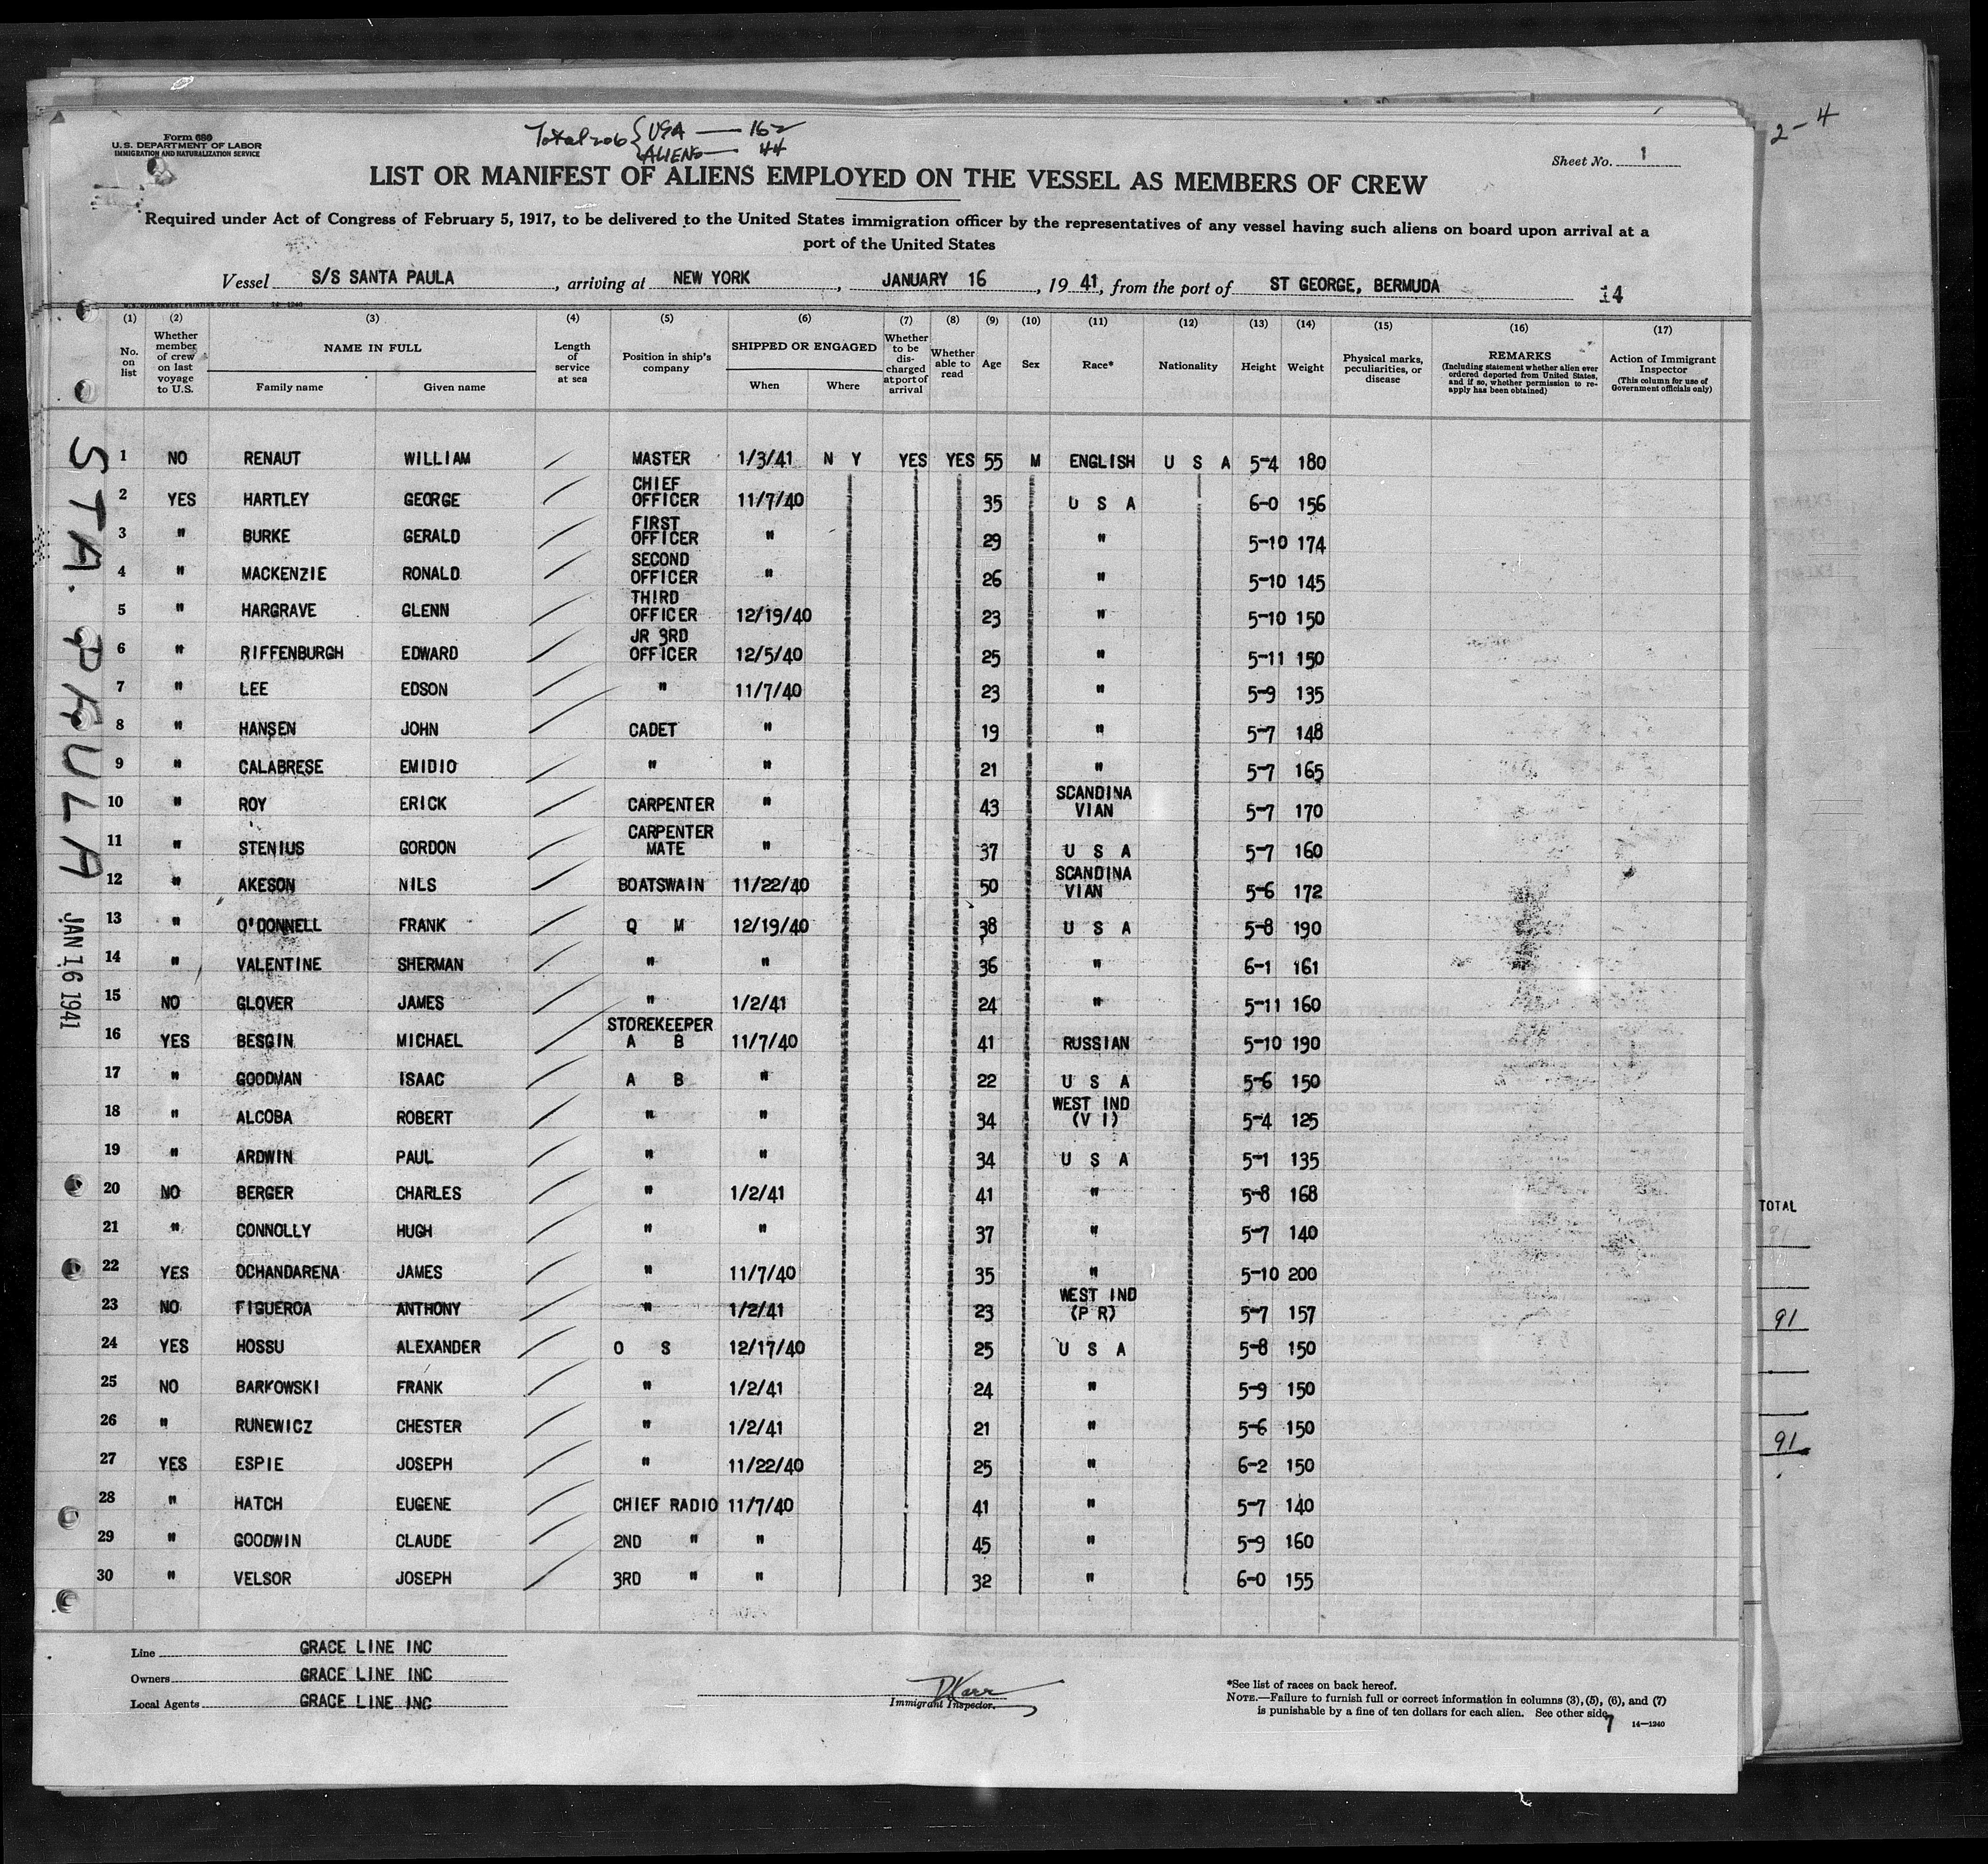 Form 680
U.S. DEPARTMENT OF LABOR
IMMIGRATION AND NATURALIZATION SERVICE
Total 206 { USA — 162
ALIENS — 44
2-4
Sheet No. 1
LIST OR MANIFEST OF ALIENS EMPLOYED ON THE VESSEL AS MEMBERS OF CREW
Required under Act of Congress of February 5, 1917, to be delivered to the United States immigration officer by the representatives of any vessel having such aliens on board upon arrival at a
port of the United States
Vessel S/S SANTA PAULA, arriving at NEW YORK, JANUARY 16, 19 41, from the port of ST GEORGE, BERMUDA 14
U. S. GOVERNMENT PRINTING OFFICE 14-1240
(1) No. on list (2) Whether member of crew on last voyage to U.S. (3) NAME IN FULL Family name Given name (4) Length of service at sea (5) Position in ship's company (6) SHIPPED OR ENGAGED When Where (7) Whether to be discharged at port of arrival (8) Whether able to read (9) Age (10) Sex (11) Race* (12) Nationality (13) Height (14) Weight (15) Physical marks, peculiarities, or disease (16) REMARKS (Including statement whether alien ever ordered deported from United States, and if so, whether permission to re-apply has been obtained) (17) Action of Immigrant Inspector (This column for use of Government officials only)
STA. PAULA
JAN 16 1941
1 NO RENAUT WILLIAM MASTER 1/3/41 N Y YES YES 55 M ENGLISH U S A 5-4 180
2 YES HARTLEY GEORGE CHIEF OFFICER 11/7/40 35 U S A 6-0 156
3 " BURKE GERALD FIRST OFFICER " 29 " 5-10 174
4 " MACKENZIE RONALD SECOND OFFICER " 26 " 5-10 145
5 " HARGRAVE GLENN THIRD OFFICER 12/19/40 23 " 5-10 150
6 " RIFFENBURGH EDWARD JR 3RD OFFICER 12/5/40 25 " 5-11 150
7 " LEE EDSON " 11/7/40 23 " 5-9 135
8 " HANSEN JOHN CADET " 19 " 5-7 148
9 " CALABRESE EMIDIO " " 21 " 5-7 165
10 " ROY ERICK CARPENTER " 43 SCANDINA VIAN 5-7 170
11 " STENIUS GORDON CARPENTER MATE " 37 U S A 5-7 160
12 " AKESON NILS BOATSWAIN 11/22/40 50 SCANDINA VIAN 5-6 172
13 " O'DONNELL FRANK Q M 12/19/40 38 U S A 5-8 190
14 " VALENTINE SHERMAN " " 36 " 6-1 161
15 NO GLOVER JAMES " 1/2/41 24 " 5-11 160
16 YES BESGIN MICHAEL STOREKEEPER A B 11/7/40 41 RUSSIAN 5-10 190
17 " GOODMAN ISAAC A B " 22 U S A 5-6 150
18 " ALCOBA ROBERT " " 34 WEST IND (V I) 5-4 125
19 " ARDWIN PAUL " " 34 U S A 5-1 135
20 NO BERGER CHARLES " 1/2/41 41 " 5-8 168
21 " CONNOLLY HUGH " " 37 " 5-7 140
22 YES OCHANDARENA JAMES " 11/7/40 35 " 5-10 200
23 NO FIGUEROA ANTHONY " 1/2/41 23 WEST IND (P R) 5-7 157
24 YES HOSSU ALEXANDER O S 12/17/40 25 U S A 5-8 150
25 NO BARKOWSKI FRANK " 1/2/41 24 " 5-9 150
26 " RUNEWICZ CHESTER " 1/2/41 21 " 5-6 150
27 YES ESPIE JOSEPH " 11/22/40 25 " 6-2 150
28 " HATCH EUGENE CHIEF RADIO 11/7/40 41 " 5-7 140
29 " GOODWIN CLAUDE 2ND " " 45 " 5-9 160
30 " VELSOR JOSEPH 3RD " " 32 " 6-0 155
TOTAL
91
91
91
Line GRACE LINE INC
Owners GRACE LINE INC
Local Agents GRACE LINE INC
Immigrant Inspector.
*See list of races on back hereof.
NOTE.—Failure to furnish full or correct information in columns (3), (5), (6), and (7)
is punishable by a fine of ten dollars for each alien. See other side.
7
14—1240